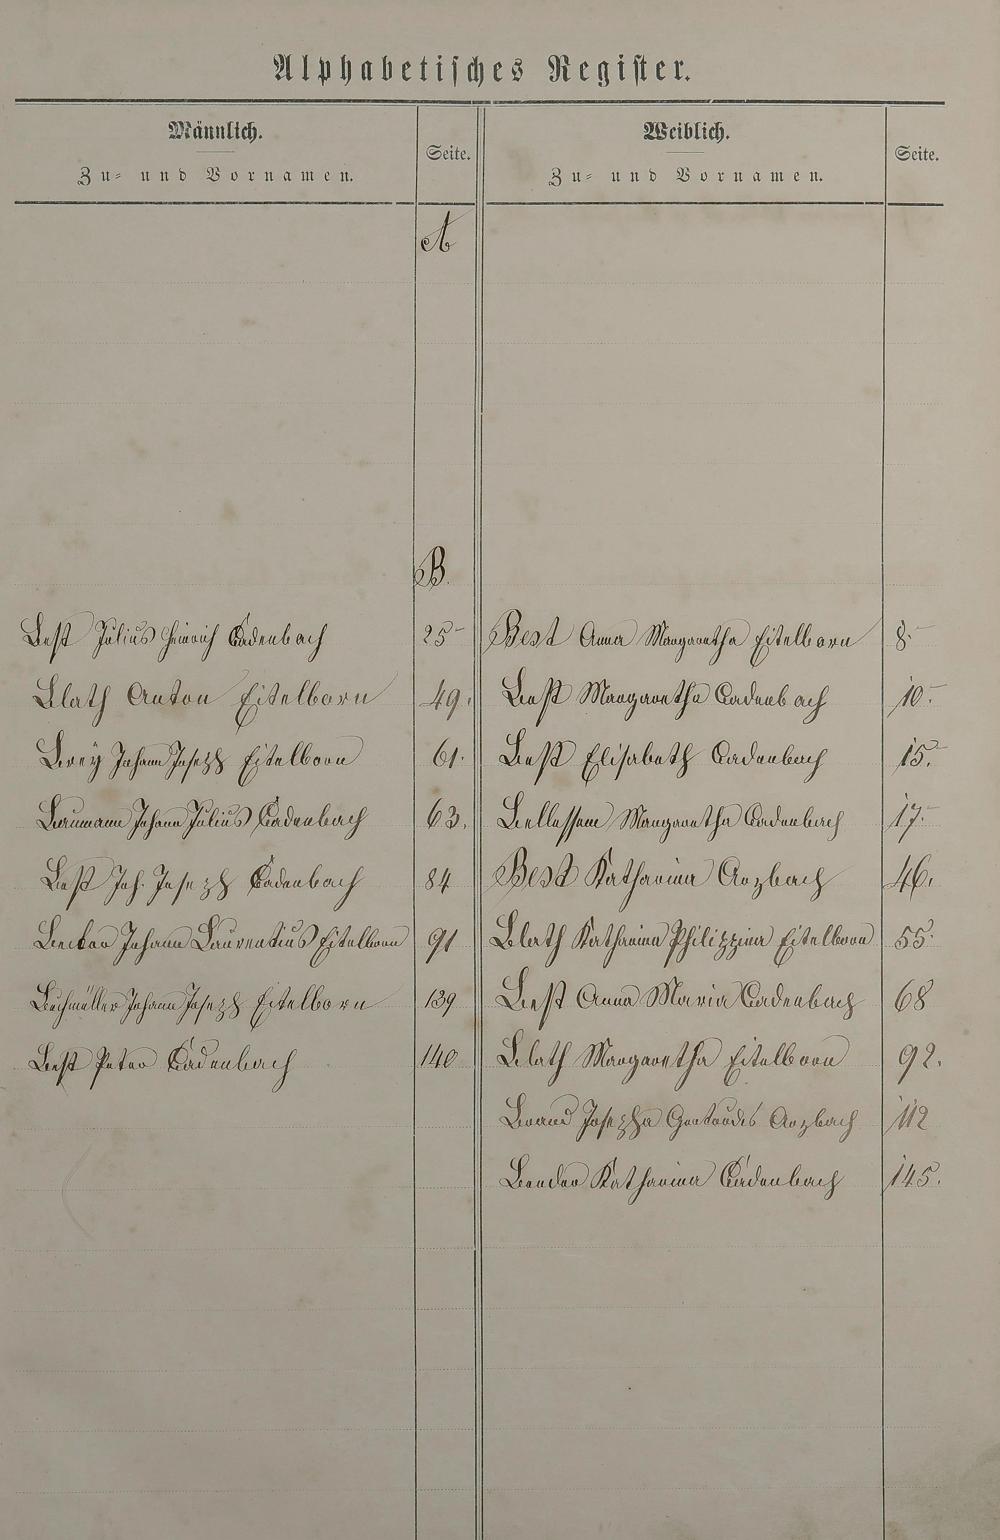 Alphabetisches Register.
Männlich. Seite. Weiblich. Seite.
Zu- und Vornamen. Zu- und Vornamen.
A
B.
Best Julius Heinrich Cadenbach 25 Best Anna Margaretha Eitelborn 8.
Blath Anton Eitelborn 49. Best Margaretha Cadenbach 10.
Brey Johann Joseph Eitelborn 61. Best Elisabeth Cadenbach 15.
Baumann Johann Julius Cadenbach 63. Bellessem Margaretha Cadenbach 17.
Best Joh. Joseph Cadenbach 84 Best Katharina Arzbach 46.
Becker Johann Laurentius Eitelborn 91 Blath Katharina Philippina Eitelborn 55.
Bechmüller Johann Joseph Eitelborn 139 Best Anna Maria Cadenbach 68
Best Peter Cadenbach 140 Blath Margaretha Eitelborn 92.
Brand Josepha Gertrudis Arzbach 112
Bender Katharina Cadenbach 145.